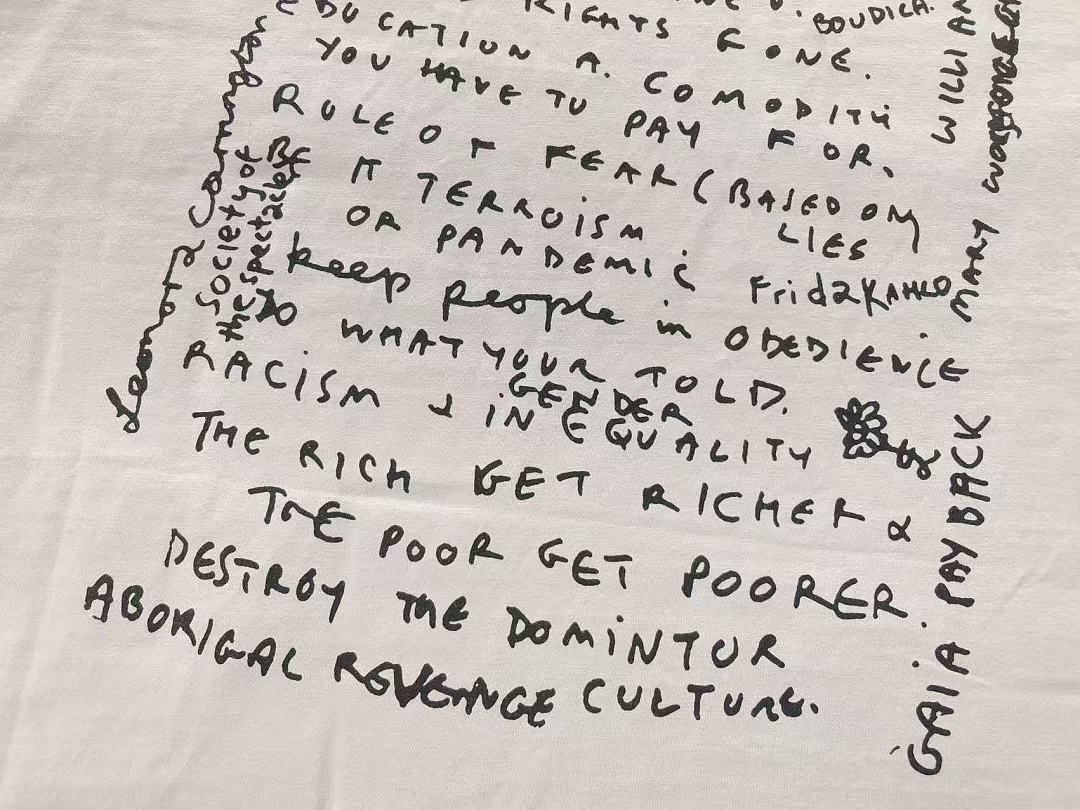 RIGHTS GONE.
BOUDICA.
EDUCATION A. COMODITY
YOU HAVE TO PAY FOR,
RULE OF FEAR (BASED ON
LIES
IT TERROISM
OR PANDEMIC
Frida KAHLO
keep people in OBEDIENCE
DO WHAT YOUR TOLD.
RACISM & IN EQUALITY
GENDER
THE RICH GET RICHER &
THE POOR GET POORER.
DESTROY THE DOMINTUR
ABORIGAL REVENGE CULTURE.
Leonora Carrington
Society of
the Spectacle
MARY
GAIA PAYBACK